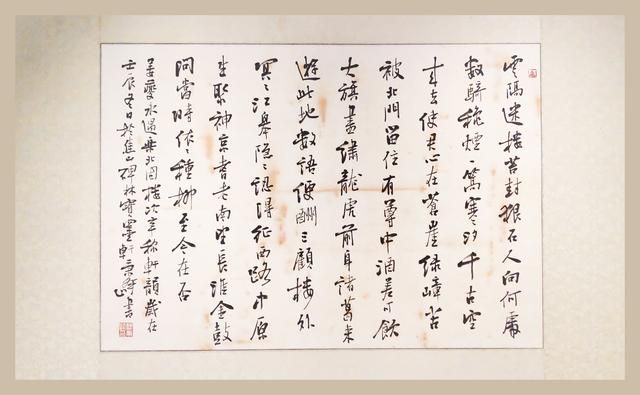 雲隔迷樓苔封狠石人向何處
数騎秋煙一篙寒汐千古空
来去使君心在蒼崖绿嶂苦
被北門留住有尊中酒差可飲
大旗畫繡龍虎前身諸葛来
遊此地数語便酬三顧樓外
冥〻江皋隐〻認得征西路中原
生聚神京耆老南望長淮金鼓
問當時依〻種柳至今在否
姜夔永遇樂北固樓次辛稼軒韻歲在
壬辰冬日於焦山碑林寶墨軒書